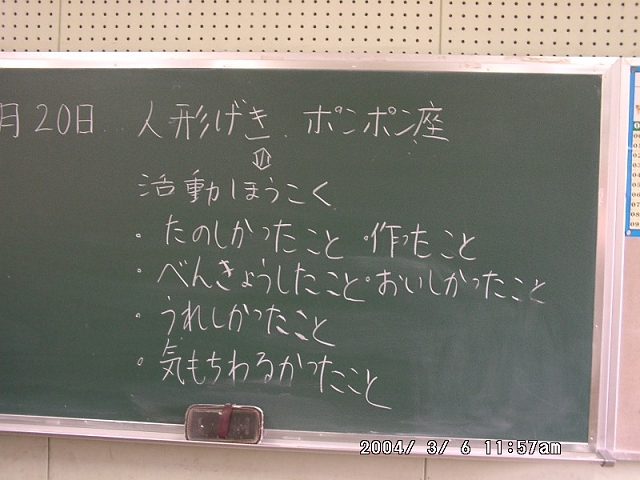 月20日 人形げき ポンポン座
⇩
活動ほうこく
・たのしかったこと ・作ったこと
・べんきょうしたこと ・おいしかったこと
・うれしかったこと
・気もちわるかったこと
2004/ 3/ 6 11:57am